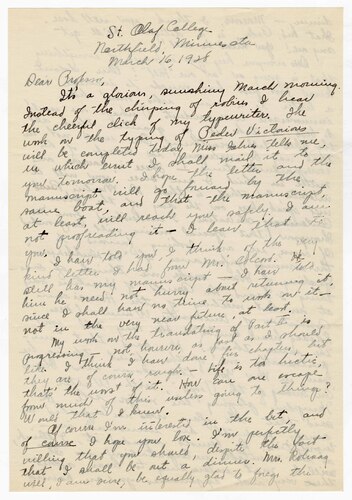 St. Olaf College
Northfield, Minnesota
March 16, 1928
Dear Professor,
It's a glorious, sunshiny March morning.
Instead of the chirping of robins I hear
the cheerful click of my typewriter. The
work on the typing of Peder Victorious
will be completed today, Miss tells me,
in which event I shall mail it to
you tomorrow. I hope the letter and the
manuscript will go forward by the
same boat, and that the manuscript,
at least, will reach you safely. I am
not proofreading it — I leave that to
you.
I have told you, I think, of the very
kind letter I had from Mr. He
still has my manuscript — I have told
him he need not hurry about returning it,
since I shall have no time to work on it —
not in the very near future, at least.
My work on the translating of is
progressing — not however as fast as I should
like. I think I have done chapters, but
they are of course rough — life is too hectic,
that's the worst of it. How can one escape
from much of this useless going to things?
Would that I knew.
Of course I'm interested in the bet, and
of course I hope you lose. I'm perfectly
willing that you should, despite the fact
that I shall be out a dinner. Mrs. Rolvaag
will, I am sure, be equally glad to forego the